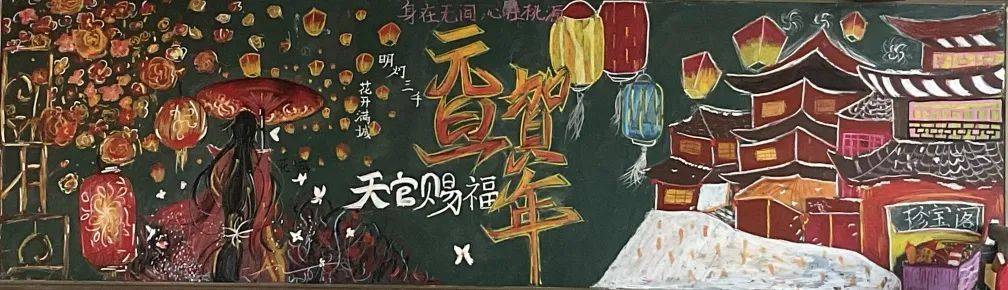 身在无间,心在桃源
元旦
賀年
明灯三千
花开满城
天官赐福
珍宝阁